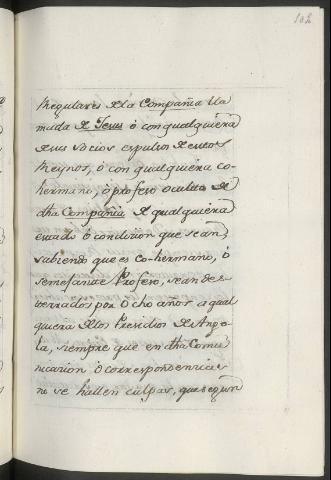 102
Regulares de la Compañia lla
mada de Jesus ò con qualquiera
de sus socios expulsos de estos
Reynos, ò con qualquiera co-
hermano, ò profeso oculto de
dha Compañia de qualquiera
estado ò condizion que sean
sabiendo que es Co-hermano, ò
semejante Profeso, sean des-
terrados por Ocho años, a qual
quiera de los Presidios de Ange-
la, siempre que en dha Comu
nicazion ò correspondenzia
no se hallen culpas, que segun